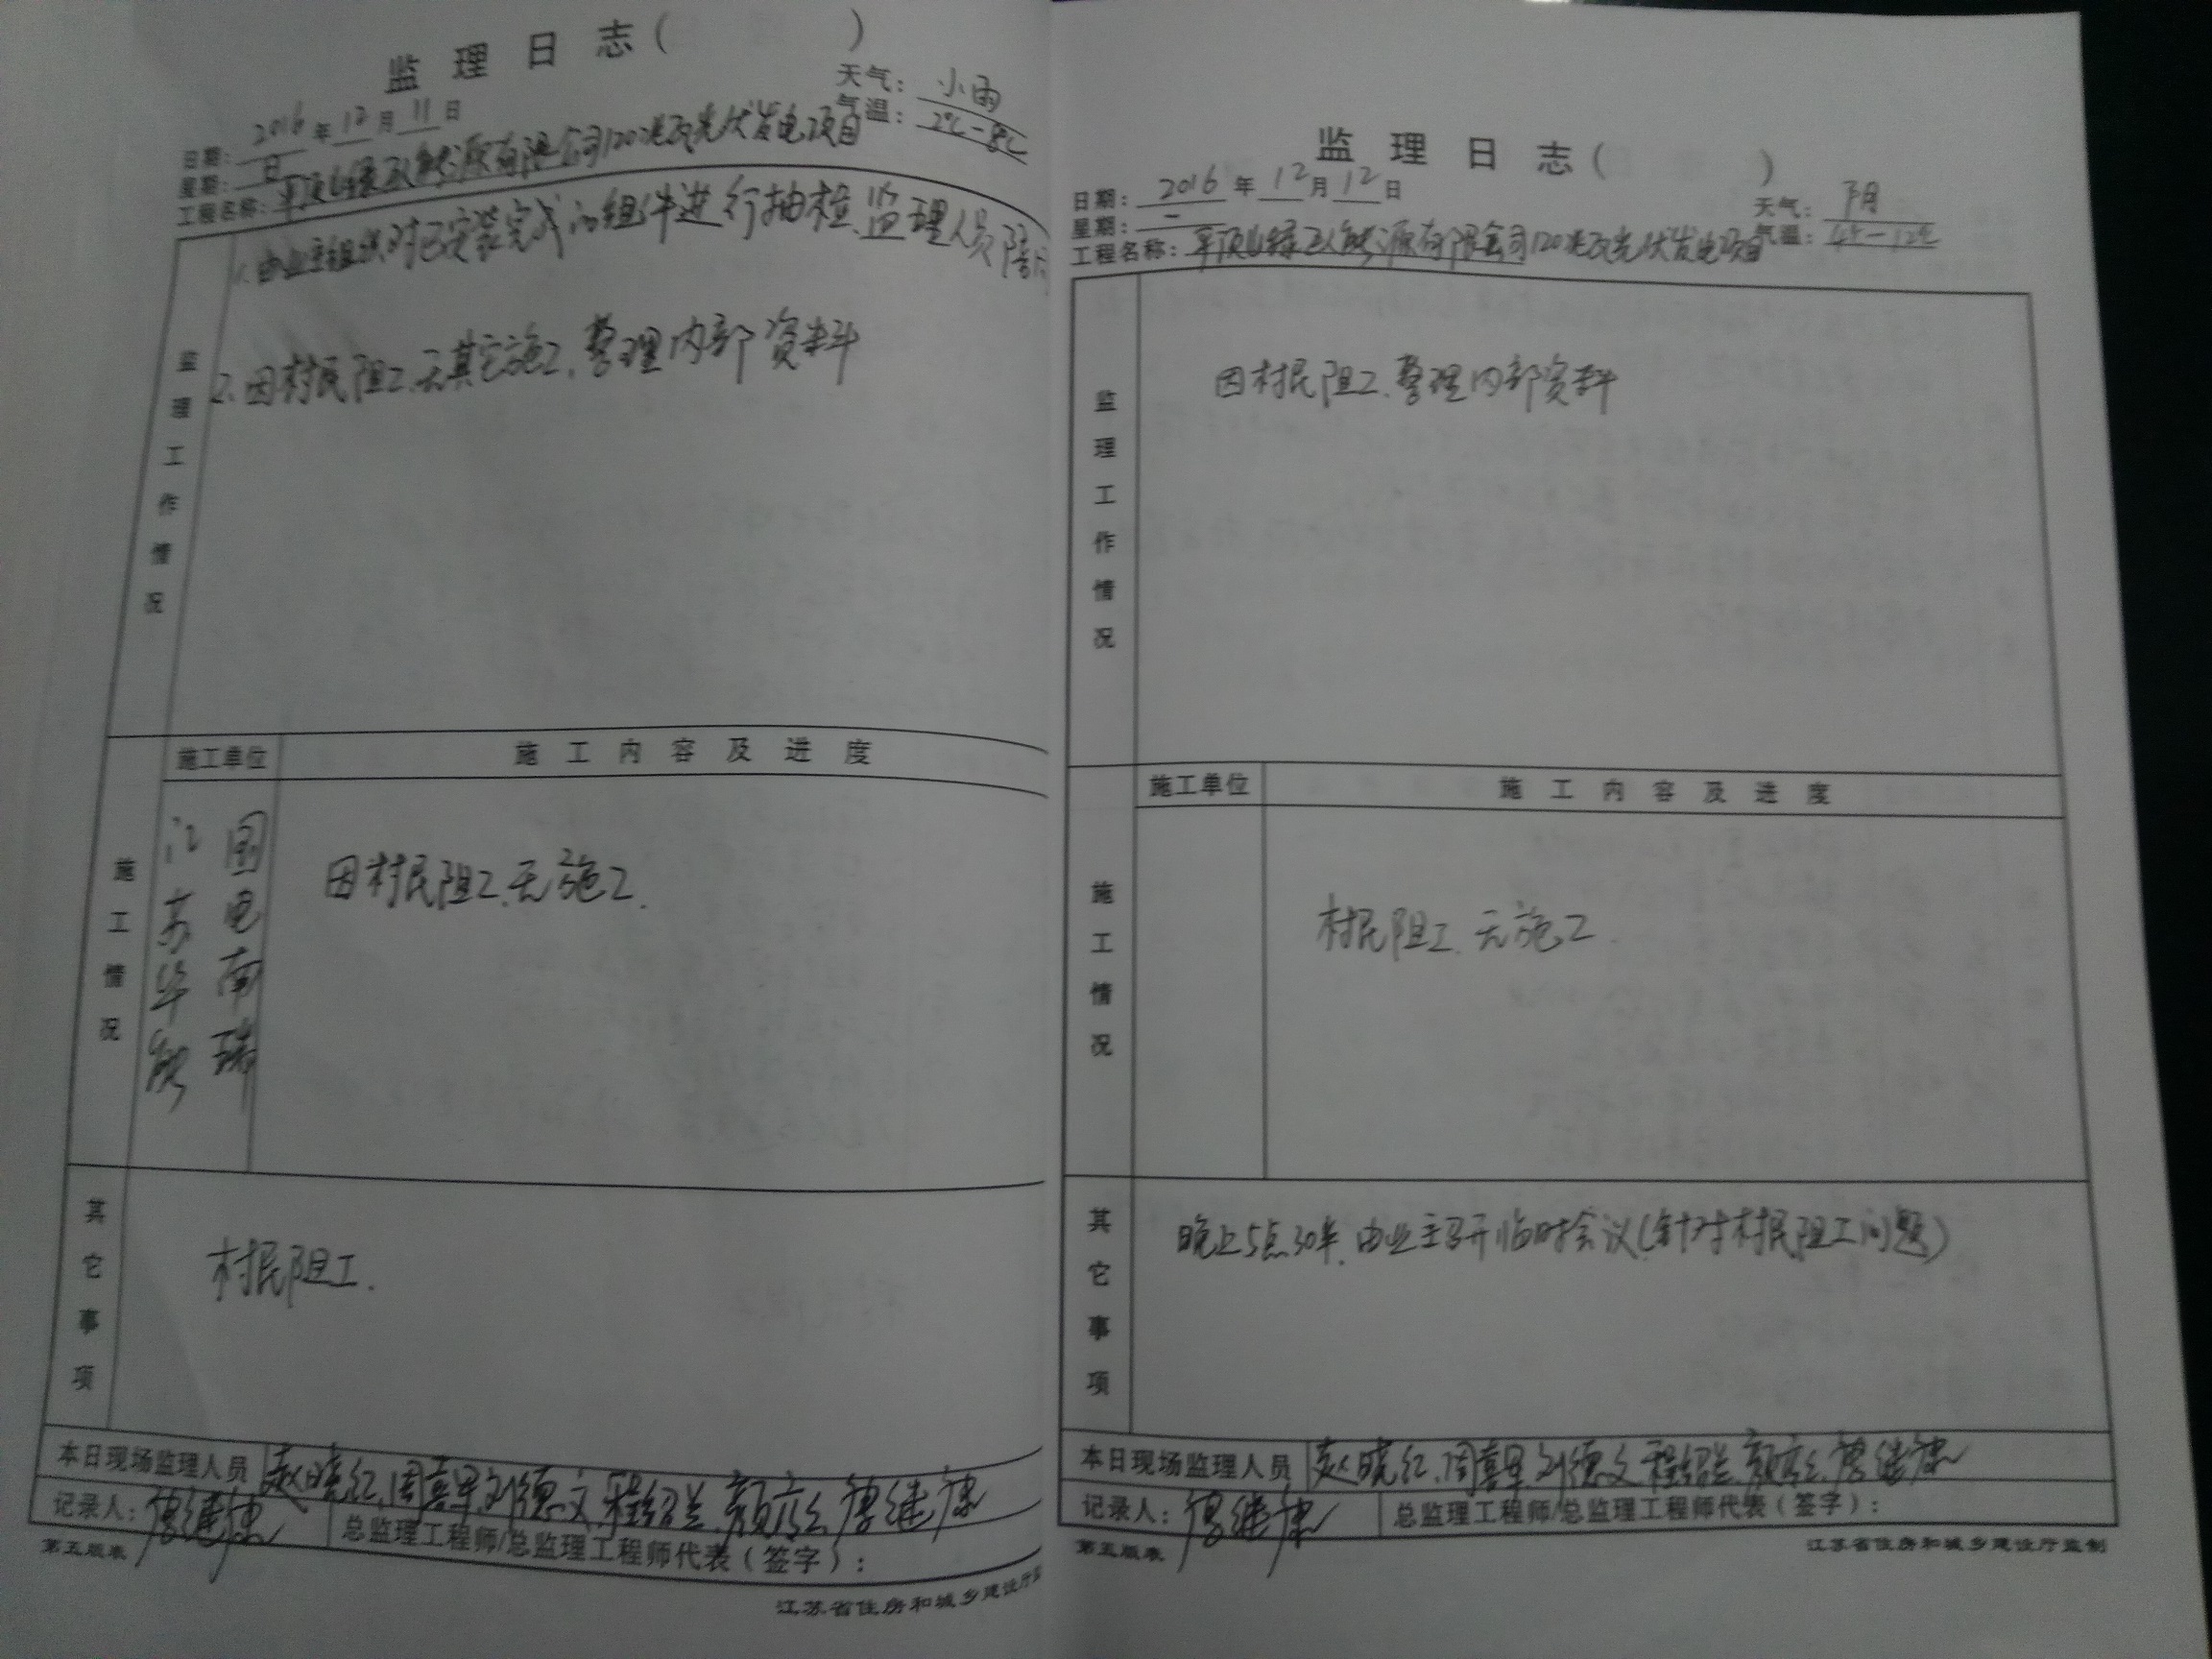 监理日志（ ）
日期：2016年12月11日 天气：小雨
星期：日 气温：2℃-8℃
工程名称：平顶山绿能源有限公司120兆瓦光伏发电项目
监理工作情况
1、由业主组织对已安装完成的组件进行抽检、监理人员陪同
2、因村民阻工、无其它施工、整理内部资料
施工情况
施工单位 施工内容及进度
江苏华能 国电南瑞
因村民阻工、无施工.
其它事项
村民阻工.
本日现场监理人员 赵晓红、周喜军、刘德文、程绍兰、颜
记录人： 总监理工程师/总监理工程师代表（签字）：
第五版表 江苏省住房和城乡建设厅
监理日志（ ）
日期：2016年12月12日 天气：阴
星期：一 气温：4℃-12℃
工程名称：平顶山绿能源有限公司120兆瓦光伏发电项目
监理工作情况
因村民阻工、整理内部资料
施工情况
施工单位 施工内容及进度
村民阻工、无施工.
其它事项
晚上5点30半、由业主召开临时会议（针对村民阻工问题）
本日现场监理人员 赵晓红、周喜军、刘德文、程绍兰、颜
记录人： 总监理工程师/总监理工程师代表（签字）：
第五版表 江苏省住房和城乡建设厅监制